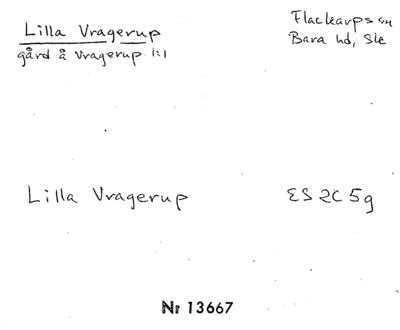 Lilla Vragerup
gård å Vragerup 1:1
Flackarps sn
Bara hd, Ske
Lilla Vragerup
ES 2C 5g
Nr 13667